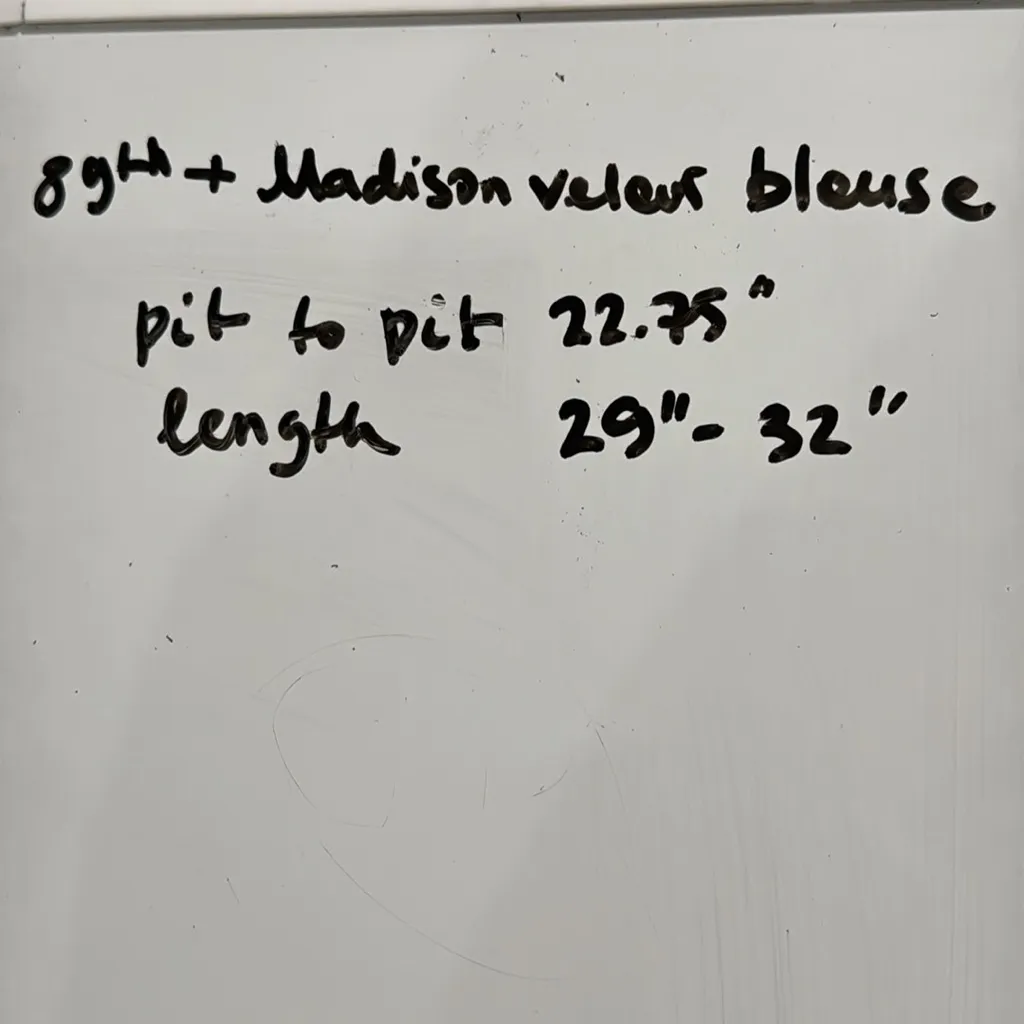 89th + Madison velour blouse
pit to pit 22.75"
length 29"- 32"